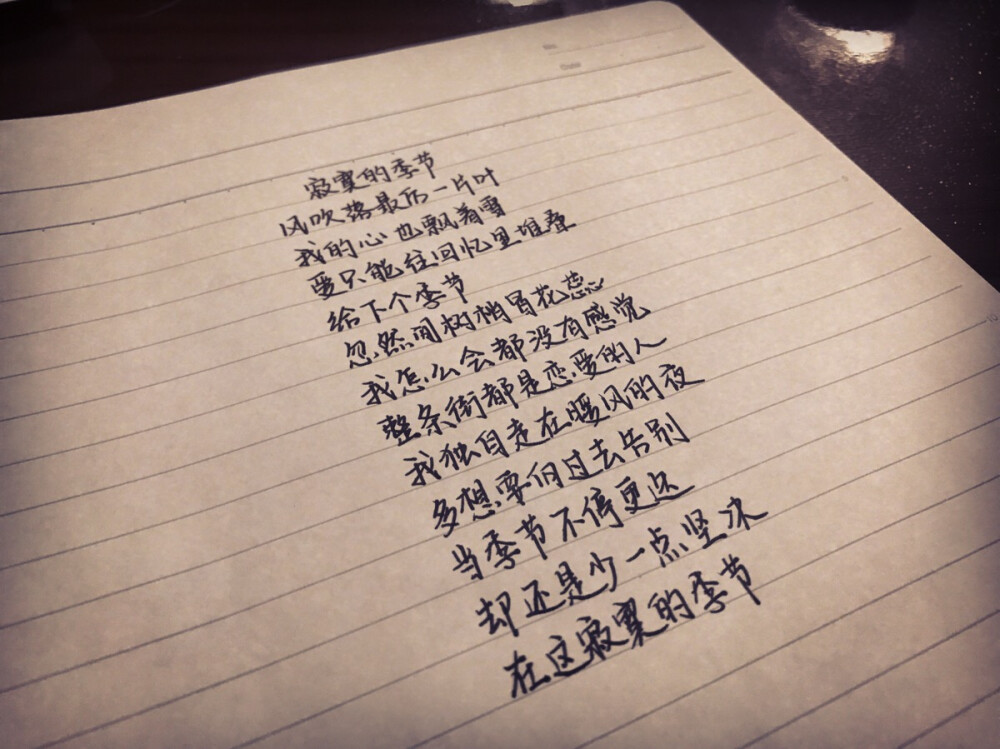 寂寞的季节
风吹落最后一片叶
我的心也飘着雪
爱只能往回忆里堆叠
给下个季节
忽然间树梢冒花蕊
我怎么会都没有感觉
整条街都是恋爱的人
我独自走在暖风的夜
多想要向过去告别
当季节不停更迭
却还是少一点坚决
在这寂寞的季节